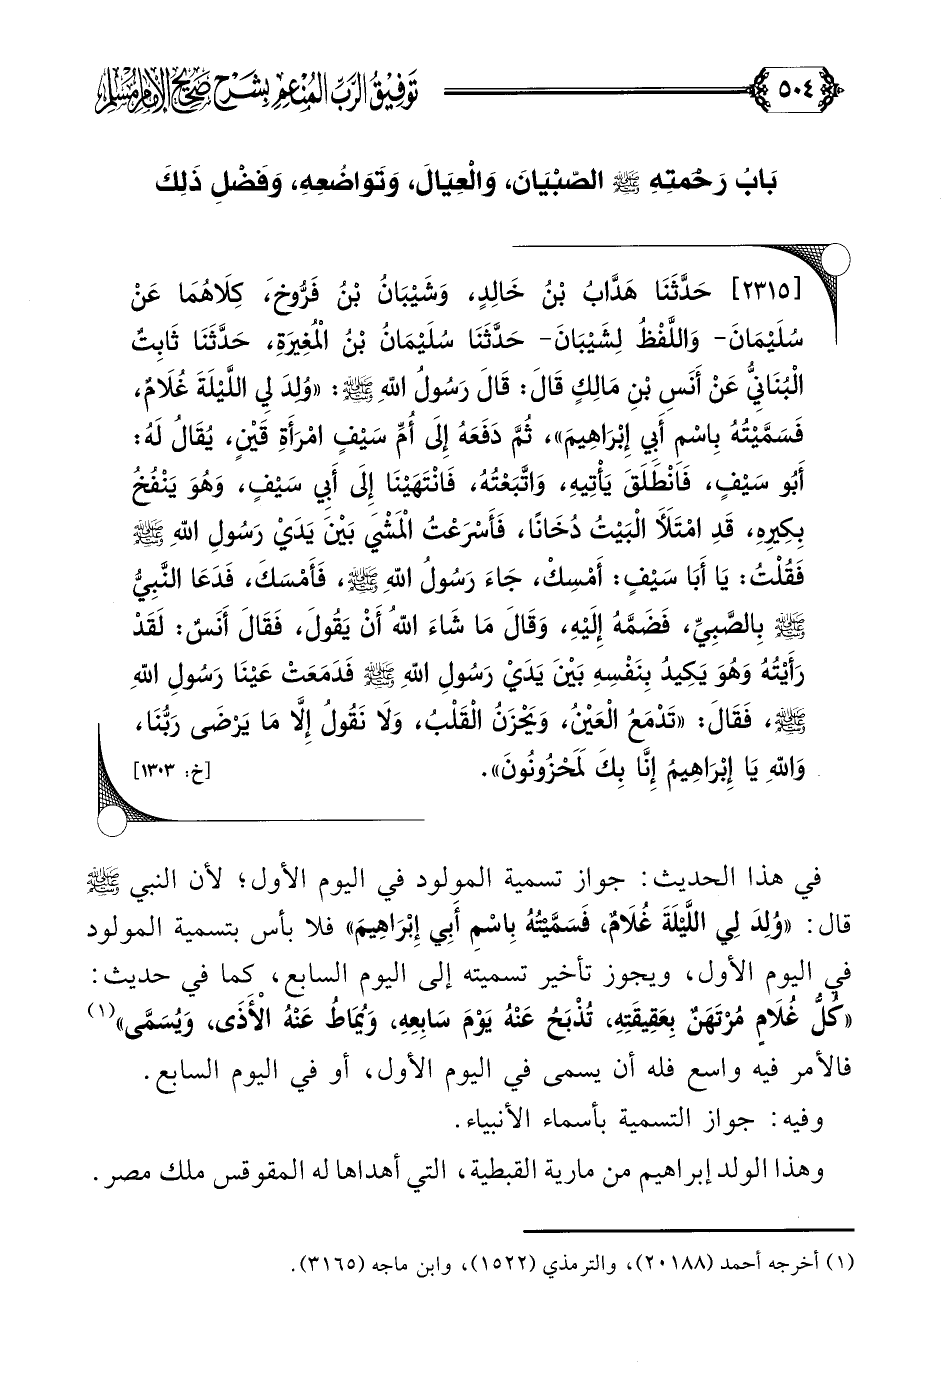 ٥٠٤ توفيق الرب المنعم بشرح صحيح الإمام مسلم
بَابُ رَحْمَتِهِ ﷺ الصِّبْيَانَ، وَالْعِيَالَ، وَتَوَاضُعِهِ، وَفَضْلِ ذَلِكَ
[٢٣١٥] حَدَّثَنَا هَدَّابُ بْنُ خَالِدٍ، وَشَيْبَانُ بْنُ فَرُّوخَ، كِلَاهُمَا عَنْ
سُلَيْمَانَ- وَاللَّفْظُ لِشَيْبَانَ- حَدَّثَنَا سُلَيْمَانُ بْنُ الْمُغِيرَةِ، حَدَّثَنَا ثَابِتٌ
الْبُنَانِيُّ عَنْ أَنَسِ بْنِ مَالِكٍ قَالَ: قَالَ رَسُولُ اللهِ ﷺ: «وُلِدَ لِي اللَّيْلَةَ غُلَامٌ،
فَسَمَّيْتُهُ بِاسْمِ أَبِي إِبْرَاهِيمَ»، ثُمَّ دَفَعَهُ إِلَى أُمِّ سَيْفٍ امْرَأَةِ قَيْنٍ، يُقَالُ لَهُ:
أَبُو سَيْفٍ، فَانْطَلَقَ يَأْتِيهِ، وَاتَّبَعْتُهُ، فَانْتَهَيْنَا إِلَى أَبِي سَيْفٍ، وَهُوَ يَنْفُخُ
بِكِيرِهِ، قَدِ امْتَلَأَ الْبَيْتُ دُخَانًا، فَأَسْرَعْتُ الْمَشْيَ بَيْنَ يَدَيْ رَسُولِ اللهِ ﷺ
فَقُلْتُ: يَا أَبَا سَيْفٍ: أَمْسِكْ، جَاءَ رَسُولُ اللهِ ﷺ، فَأَمْسَكَ، فَدَعَا النَّبِيُّ
ﷺ بِالصَّبِيِّ، فَضَمَّهُ إِلَيْهِ، وَقَالَ مَا شَاءَ اللهُ أَنْ يَقُولَ، فَقَالَ أَنَسٌ: لَقَدْ
رَأَيْتُهُ وَهُوَ يَكِيدُ بِنَفْسِهِ بَيْنَ يَدَيْ رَسُولِ اللهِ ﷺ فَدَمَعَتْ عَيْنَا رَسُولِ اللهِ
ﷺ، فَقَالَ: «تَدْمَعُ الْعَيْنُ، وَيَحْزَنُ الْقَلْبُ، وَلَا نَقُولُ إِلَّا مَا يَرْضَى رَبُّنَا،
وَاللهِ يَا إِبْرَاهِيمُ إِنَّا بِكَ لَمَحْزُونُونَ». [خ: ١٣٠٣]
في هذا الحديث: جواز تسمية المولود في اليوم الأول؛ لأن النبي ﷺ
قال: «وُلِدَ لِي اللَّيْلَةَ غُلَامٌ، فَسَمَّيْتُهُ بِاسْمِ أَبِي إِبْرَاهِيمَ» فلا بأس بتسمية المولود
في اليوم الأول، ويجوز تأخير تسميته إلى اليوم السابع، كما في حديث:
«كُلُّ غُلَامٍ مُرْتَهَنٌ بِعَقِيقَتِهِ، تُذْبَحُ عَنْهُ يَوْمَ سَابِعِهِ، وَيُمَاطُ عَنْهُ الْأَذَى، وَيُسَمَّى»(١)
فالأمر فيه واسع فله أن يسمى في اليوم الأول، أو في اليوم السابع.
وفيه: جواز التسمية بأسماء الأنبياء.
وهذا الولد إبراهيم من مارية القبطية، التي أهداها له المقوقس ملك مصر.
(١) أخرجه أحمد (٢٠١٨٨)، والترمذي (١٥٢٢)، وابن ماجه (٣١٦٥).